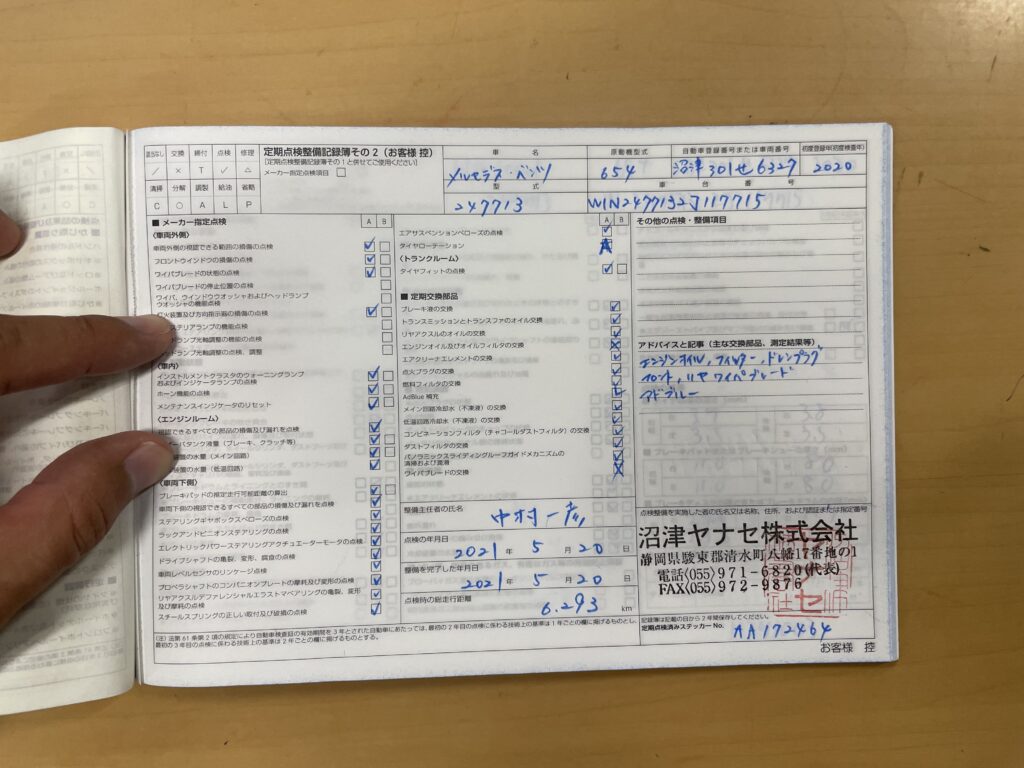 定期点検整備記録簿その2（お客様 控）
[定期点検整備記録簿その1と併せてご使用ください]
メーカー指定点検項目
交換 締付 点検 修理
／ × T ✓ △
清掃 分解 調整 給油 省略
C ○ A L P
車 名
メルセデス・ベンツ
原動機型式
654
自動車登録番号または車両番号
沼津 301せ6327
初度登録年(初度検査年)
2020
型 式
247713
車 台 番 号
W1N2477132J117715
■ メーカー指定点検
A B
〈車両外側〉
車両外側の視認できる範囲の損傷の点検
フロントウインドウの損傷の点検
ワイパブレードの状態の点検
ワイパブレードの停止位置の点検
ワイパ、ウインドウウオッシャおよびヘッドランプ
ウオッシャの機能点検
灯火装置及び方向指示器の損傷の点検
ステリアランプの機能点検
ドランプ光軸調整の機能の点検
ドランプ光軸調整の点検、調整
〈車内〉
インストルメントクラスタのウォーニングランプ
およびインジケータランプの点検
ホーン機能の点検
メンテナンスインジケータのリセット
〈エンジンルーム〉
視認できるすべての部品の損傷及び漏れを点検
ーバタンク液量（ブレーキ、クラッチ等）
装置の水量（メイン回路）
装置の水量（低温回路）
〈車両下側〉
ブレーキパッドの推定走行可能距離の算出
車両下側の視認できるすべての部品の損傷及び漏れを点検
ステアリングギヤボックスベローズの点検
ラックアンドピニオンステアリングの点検
エレクトリックパワーステアリングアクチュエーターモータの点検
ドライブシャフトの亀裂、変形、腐食の点検
車両レベルセンサのリンケージ点検
プロペラシャフトのコンパニオンプレートの摩耗及び変形の点検
リヤアクスルデファレンシャルエラストマベアリングの亀裂、変形
及び摩耗の点検
スチールスプリングの正しい取付及び破損の点検
A B
エアサスペンションベローズの点検
タイヤローテーション
〈トランクルーム〉
タイヤフィットの点検
■ 定期交換部品
ブレーキ液の交換
トランスミッションとトランスファのオイル交換
リヤアクスルのオイルの交換
エンジンオイル及びオイルフィルタの交換
エアクリーナエレメントの交換
点火プラグの交換
燃料フィルタの交換
AdBlue 補充
メイン回路冷却水（不凍液）の交換
低温回路冷却水（不凍液）の交換
コンビネーションフィルタ（チャコールダストフィルタ）の交換
ダストフィルタの交換
パノラミックスライディングルーフガイドメカニズムの
清掃および潤滑
ワイパブレードの交換
整備主任者の氏名
点検の年月日
2021 年 5 月 20 日
整備を完了した年月日
2021 年 5 月 20 日
点検時の総走行距離
6,293 km
その他の点検・整備項目
アドバイスと記事（主な交換部品、測定結果等）
エンジンオイル, フィルター, ドレンプラグ
フロント, リヤ ワイパブレード
アドブルー
点検整備を実施した者の氏名又は名称、住所、および認証または指定番号
沼津ヤナセ株式会社
静岡県駿東郡清水町八幡17番地の1
電話(055)971-6820(代表)
FAX(055)972-9876
記録簿は記載の日から2年間保存してください。
定期点検済みステッカー No. AA172464
(注) 法第61条第2項の規定により自動車検査証の有効期間を3年とされた自動車にあたっては、最初の2年目の点検に係わる技術上の基準は1年ごとの欄に掲げるものとし、
最初の3年目の点検に係わる技術上の基準は2年ごとの欄に掲げるものとする。
お客様 控